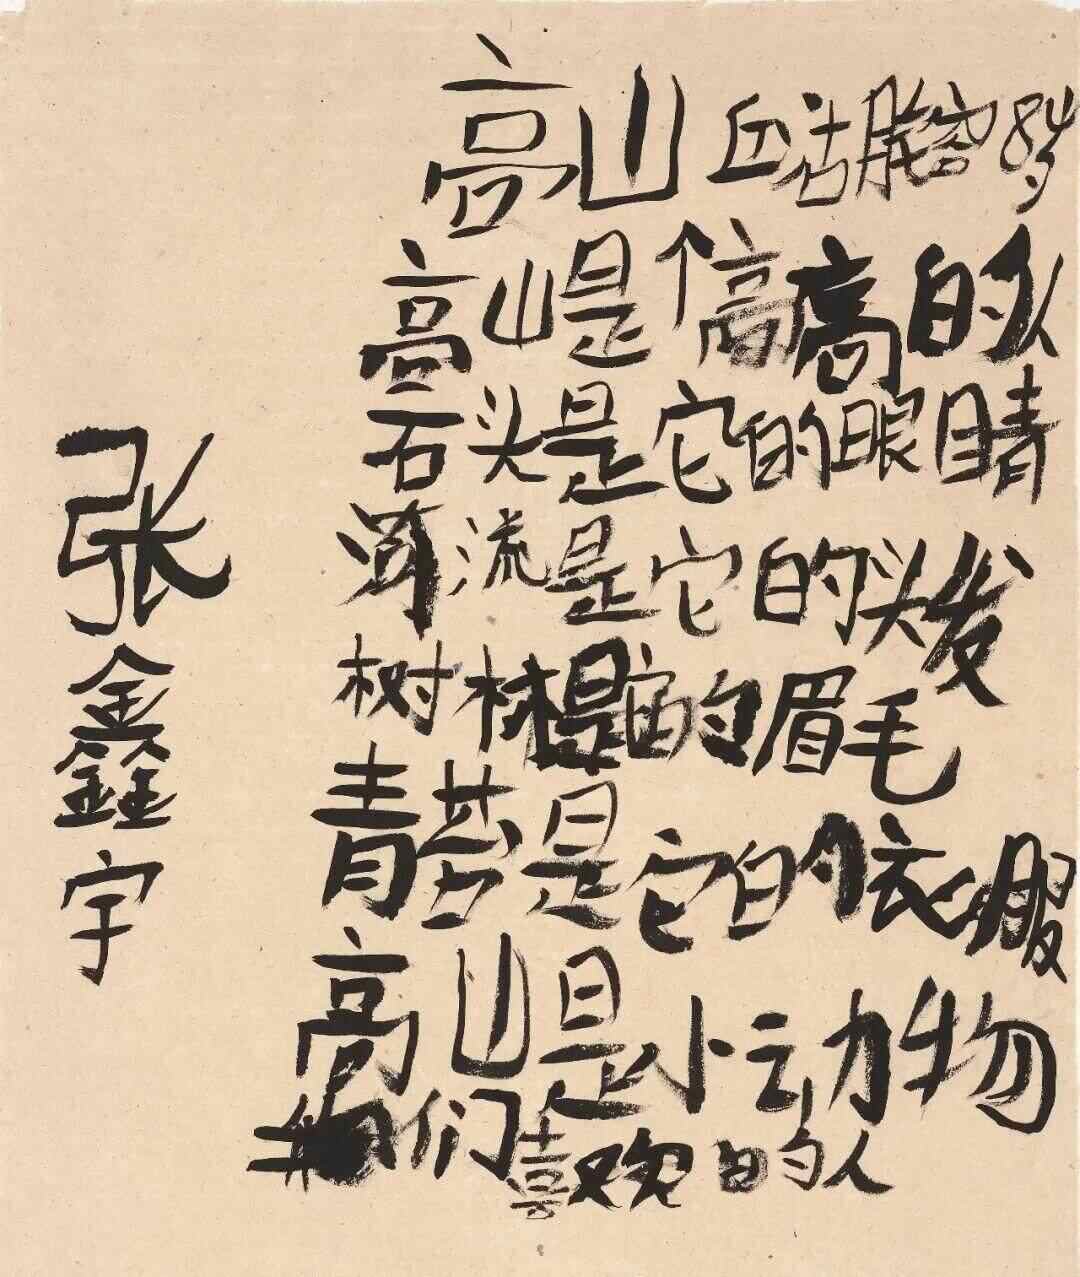 高山 8岁
高山是个高高的
石头是它的眼睛
河流是它的头发
树林是它的眉毛
青苔是它的衣服
高山是小动物
们喜欢的人
张鑫宇